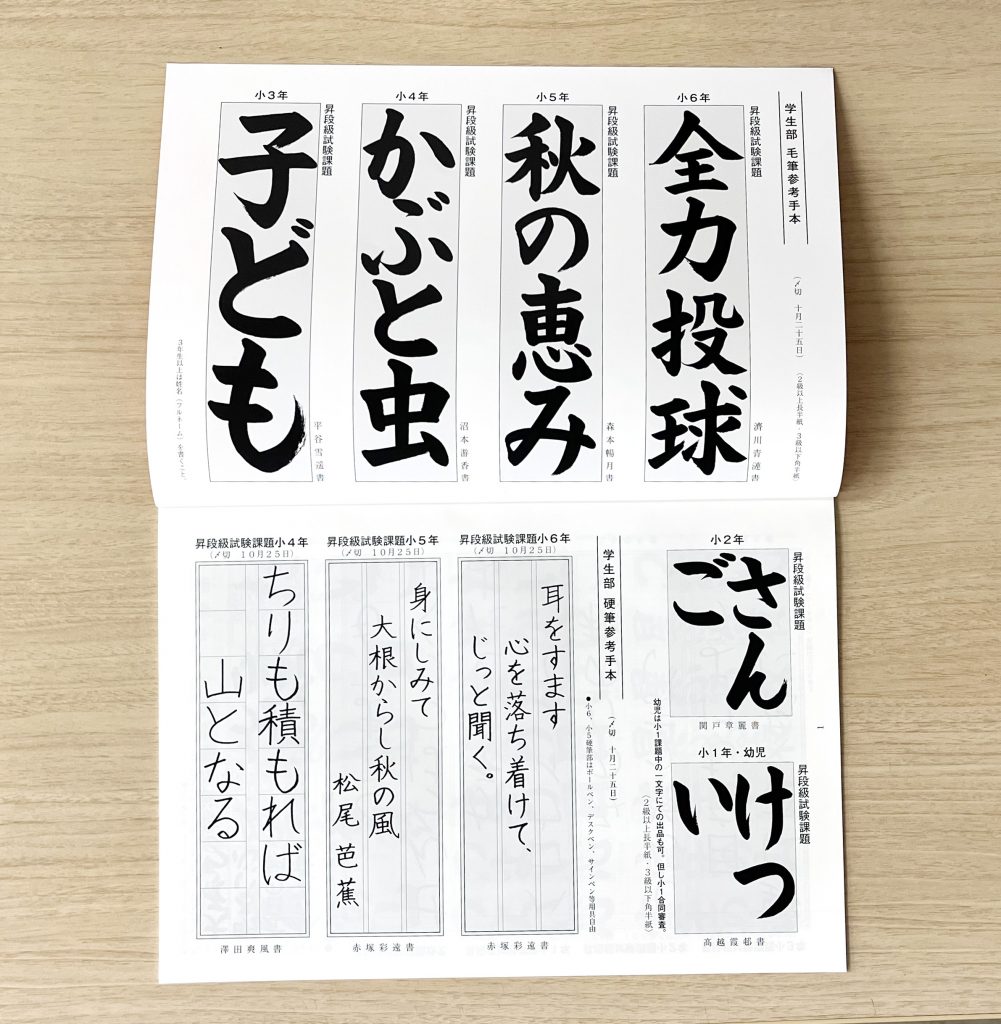 学生部 毛筆参考手本
(〆切 十月二十五日)
(2級以上長半紙・3級以下角半紙)
小6年
昇段級試験課題
全力投球
濟川青漣書
小5年
昇段級試験課題
秋の恵み
森本暢月書
小4年
昇段級試験課題
かぶと虫
沼本蒥香書
小3年
昇段級試験課題
子ども
平谷雪遥書
3年生以上は姓名(フルネーム)を書くこと。
1
小2年
昇段級試験課題
さん
ご
関戸章麗書
小1年・幼児
昇段級試験課題
けつ
い
高越霞邨書
幼児は小1課題中の一文字にての出品も可。但し小1合同審査。
(2級以上長半紙・3級以下角半紙)
学生部 硬筆参考手本
(〆切 十月二十五日)
●小6、小5硬筆部はボールペン、デスクペン、サインペン等用具自由
昇段級試験課題小6年
(〆切 10月25日)
耳をすます
心を落ち着けて、
じっと聞く。
赤塚彩遠書
昇段級試験課題小5年
(〆切 10月25日)
身にしみて
大根からし秋の風
松尾芭蕉
赤塚彩遠書
昇段級試験課題小4年
(〆切 10月25日)
ちりも積もれば
山となる
澤田爽風書